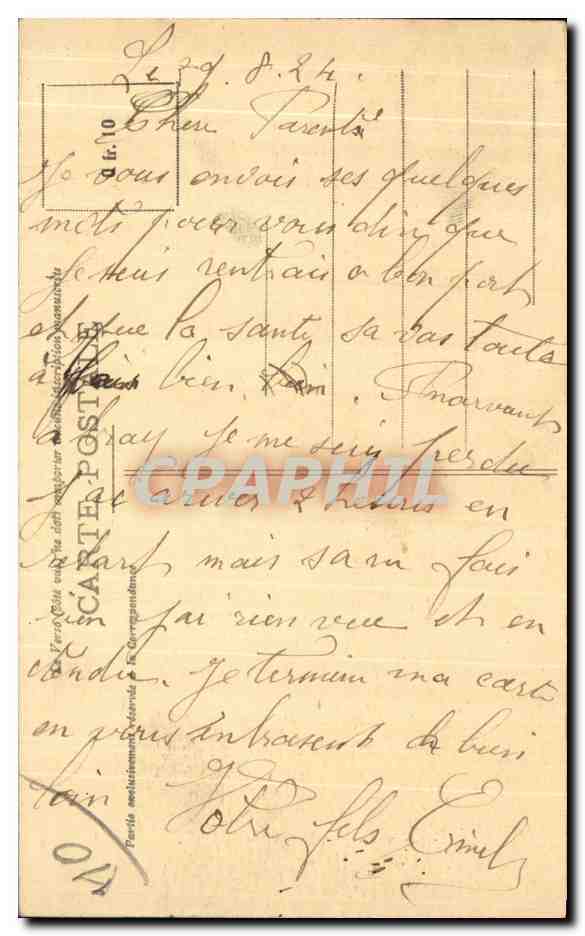 Le 29.8.24.
Chere Parents
Je vous envois ses quelques
mots pour vous dire que
je suis rentrais a bon port
et que la santé sa vas toute
à fais bien. 
a Bray je me suis perdu
j'ai arives 2 heures en
retart mais sa ne fais
rien j'ai rien vue et en
tendu. Je termine ma carte
en vous enbrasent de bien
loin Votre fils Ernest
0 fr. 10
CARTE POSTALE
Le Verso (Côté vue) ne doit comporter aucune inscription manuscrite
Partie exclusivement réservée à la Correspondance
CPAPHIL